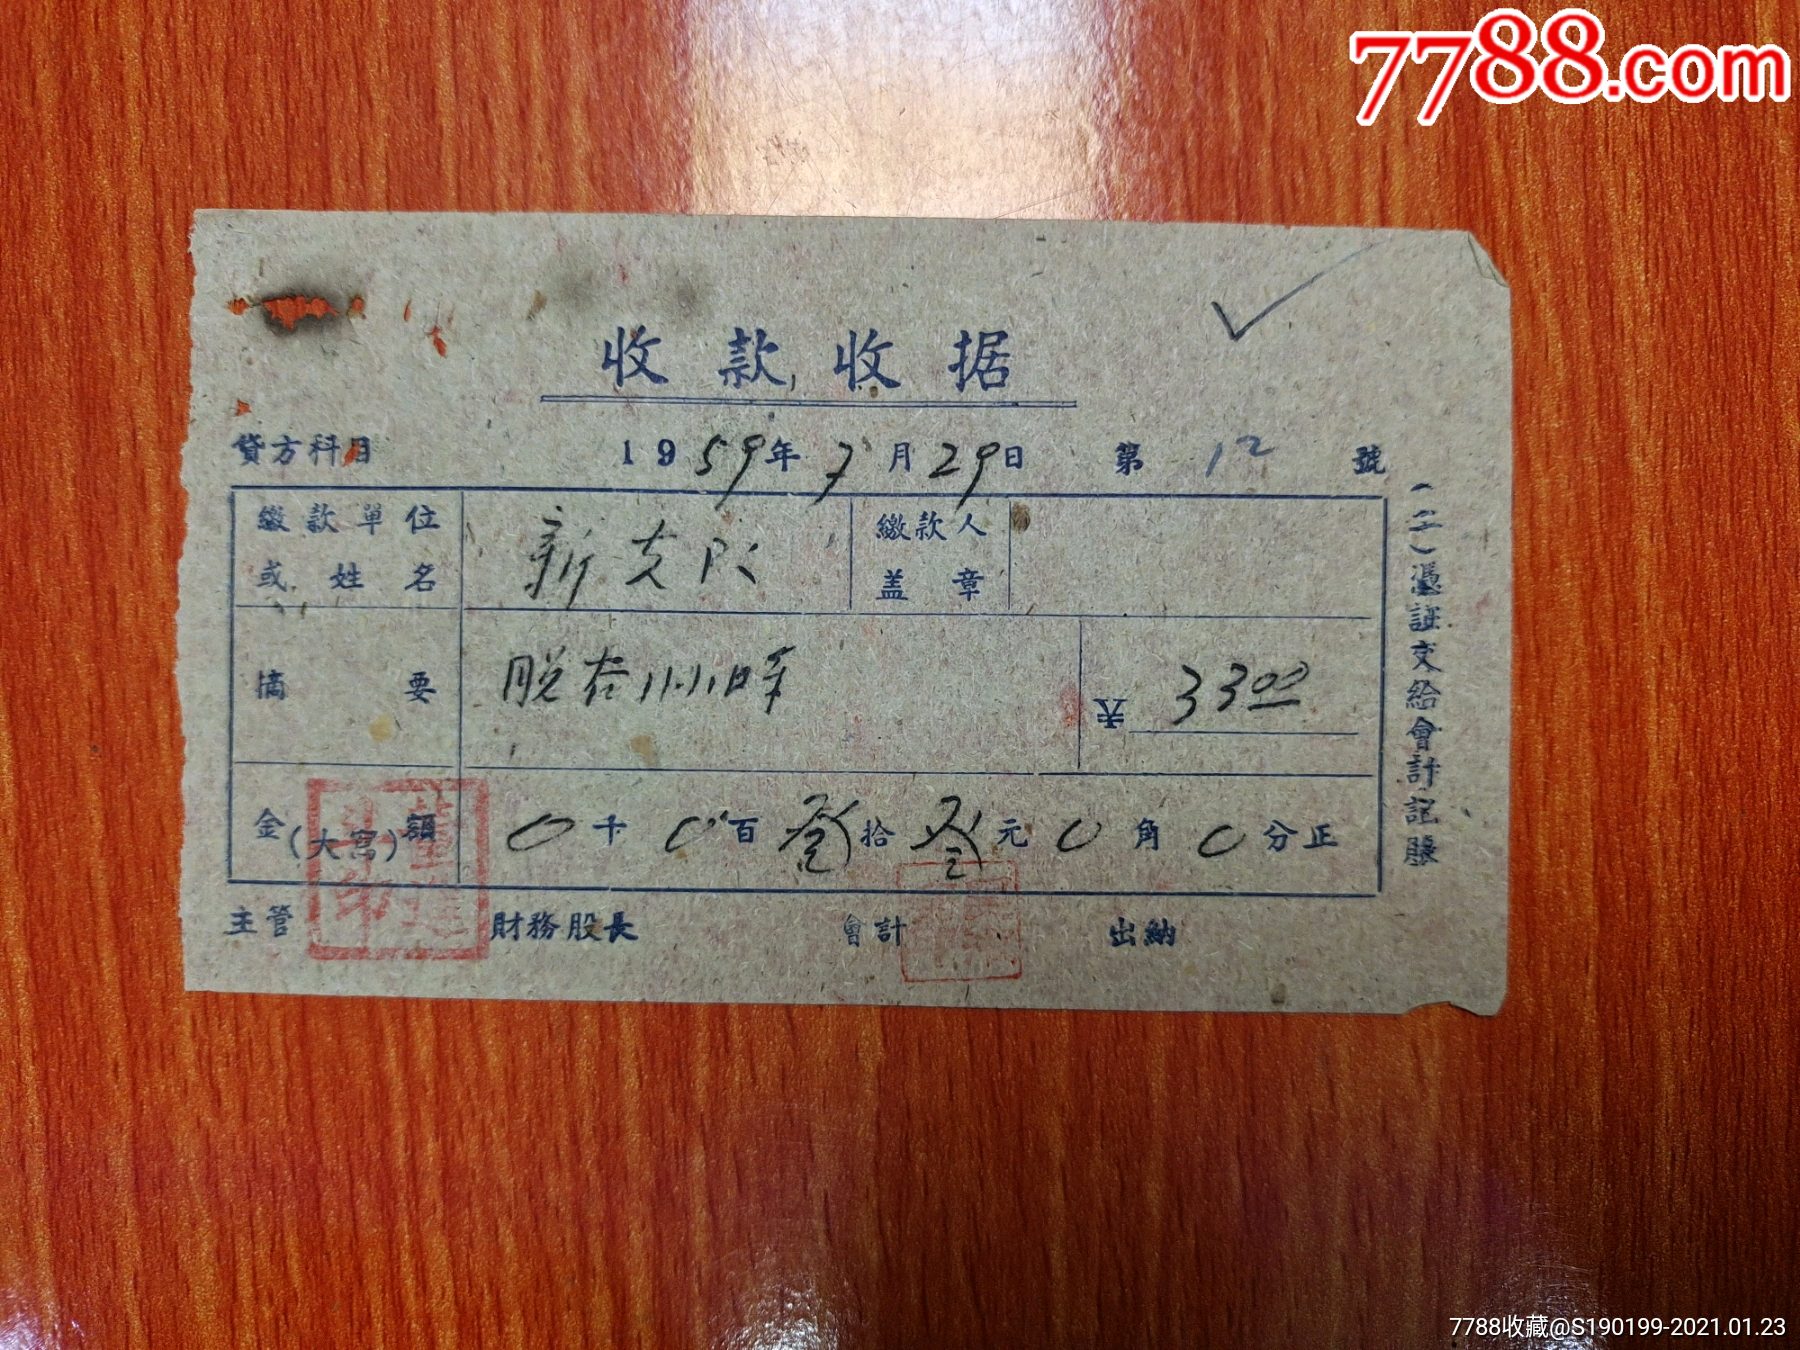 7788.com
收款收据
貸方科目 1959年7月29日 第12號
繳款單位或姓名 新支队 繳款人盖章
摘要 脱谷小时 33.00
金額(大寫) 0千0百叁拾叁元0角0分正
主管 財務股長 會計 出納
(二)憑証交給會計記賬
7788收藏@S190199-2021.01.23